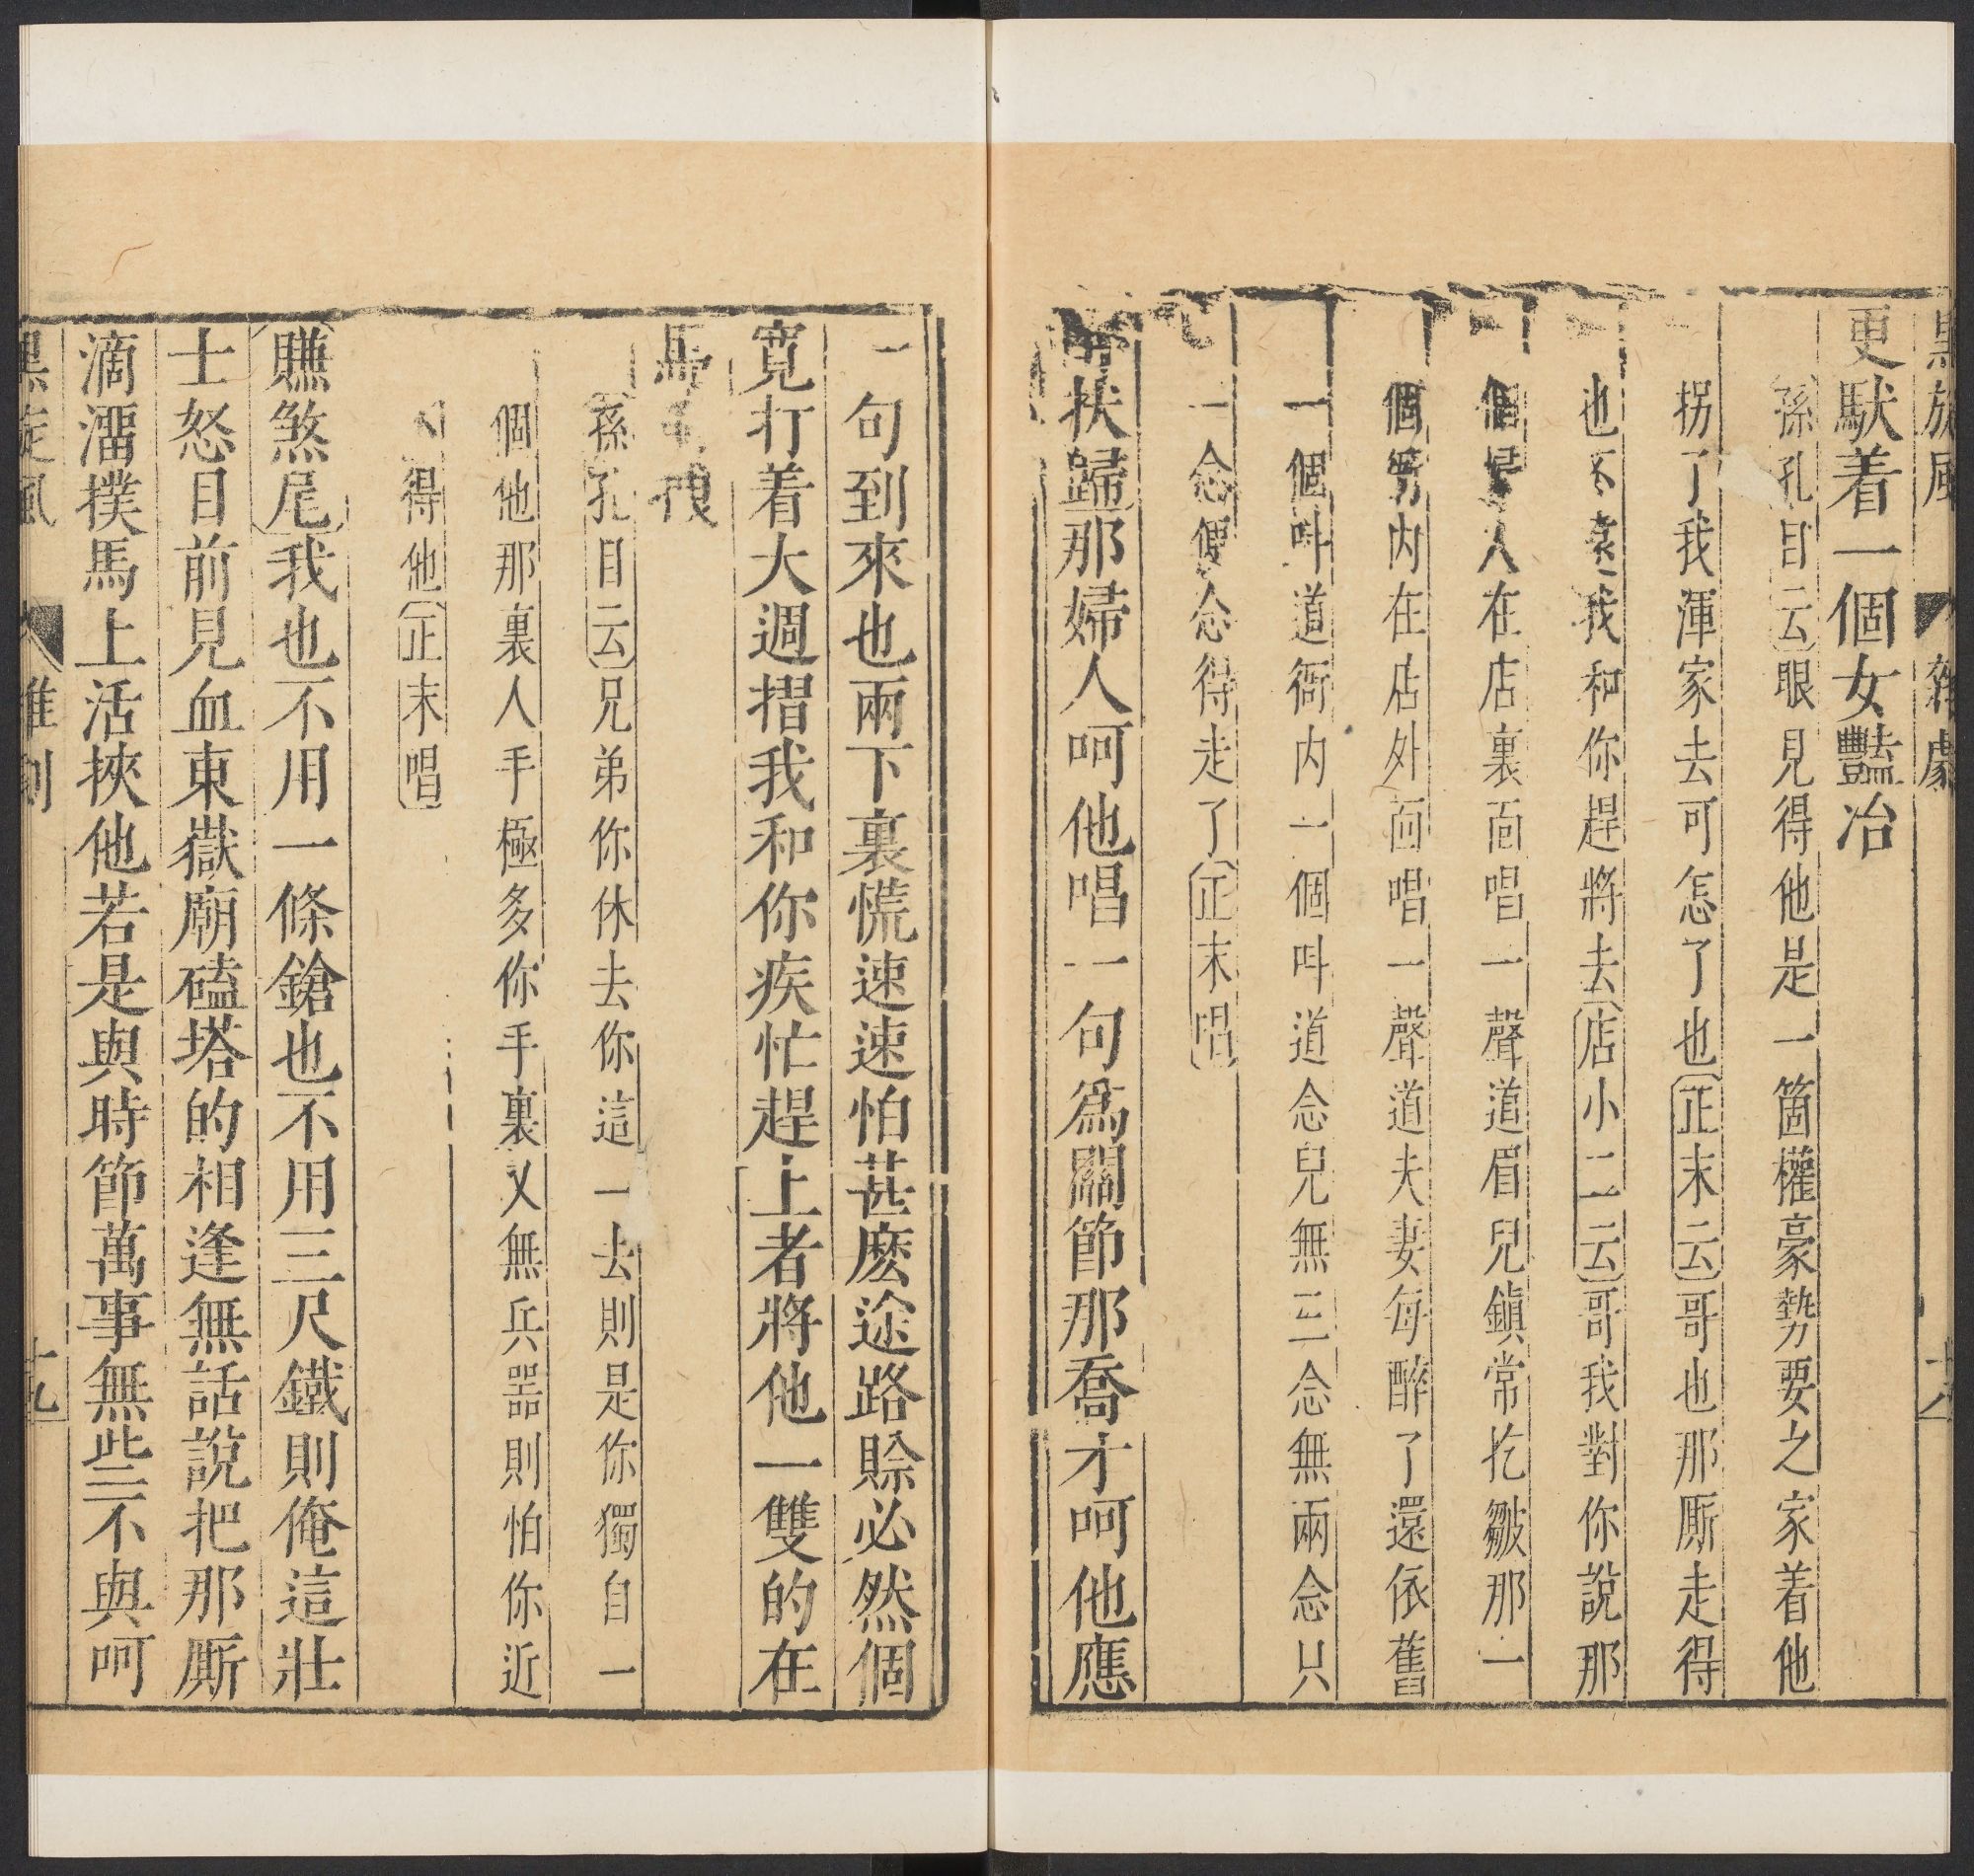 黑旋風 雜劇 十八
更馱着一個女豔冶
孫孔目云眼見得他是一箇權豪勢要之家着他
拐了我渾家去可怎了也正末云哥也那厮走得
也不遠我和你趕將去店小二云哥我對你說那
個婦人在店裏面唱一聲道眉兒鎭常扢皺那一
個衙內在店外面唱一聲道夫妻每醉了還依舊
一個叫道衙內一個叫道念兒無三念無兩念只
一念便念得走了正末唱
歸那婦人呵他唱一句爲關節那喬才呵他應
一句到來也兩下裏慌速速怕甚麽途路賒必然個
寬打着大週摺我和你疾忙趕上者將他一雙的在
馬
孫孔目云兄弟你休去你這一去則是你獨自一
個他那裏人手極多你手裏又無兵器則怕你近
不得他正末唱
賺煞尾我也不用一條鎗也不用三尺鐵則俺這壯
士怒目前見血東嶽廟磕塔的相逢無話說把那厮
滴溜撲馬上活挾他若是與時節萬事無些不與呵
黑旋風 雜劇 十九